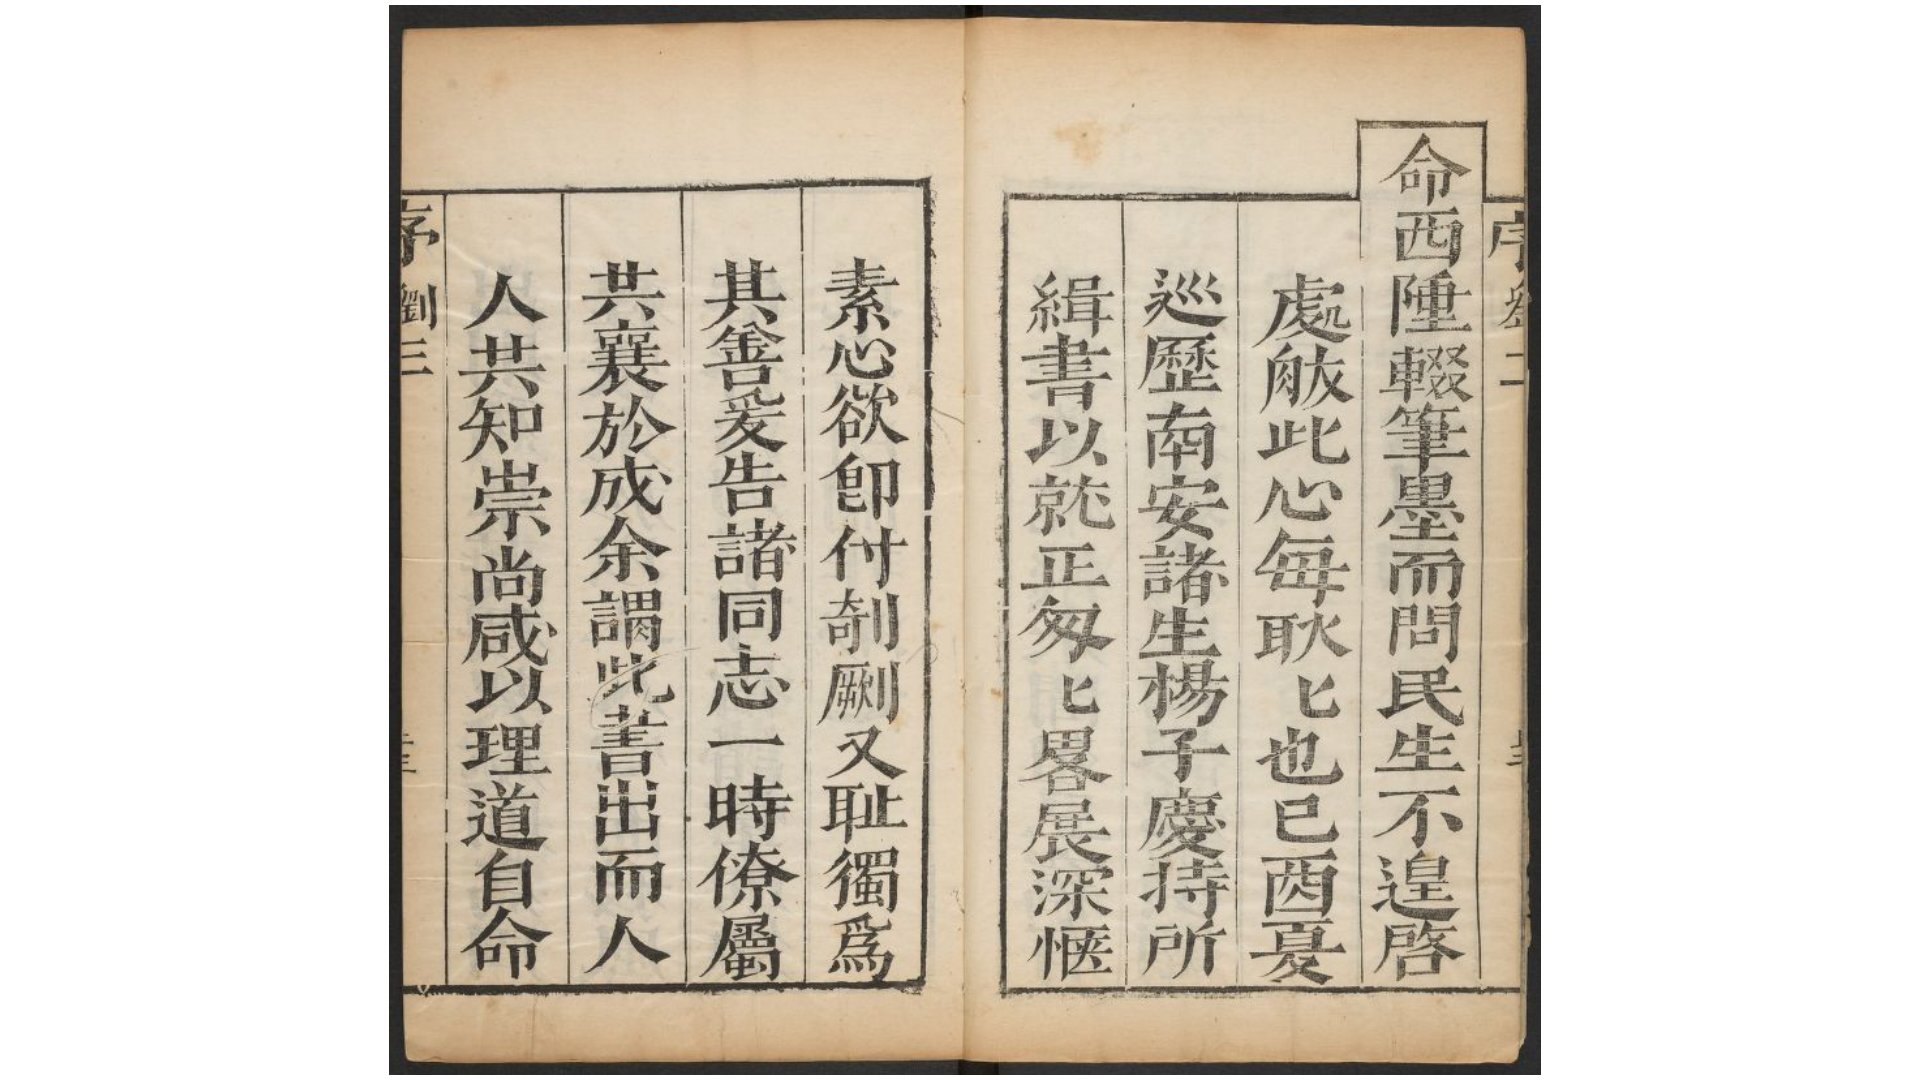 命西陲輟筆墨而問民生不遑啓
處肰此心每耿匕也已酉夏
巡歷南安諸生楊子慶持所
緝書以就正匆匕畧展深愜
素心欲卽付剞劂又耻獨爲
其善爰告諸同志一時僚屬
共襄於成余謂此書出而人
人共知崇尚咸以理道自命
序 劉三